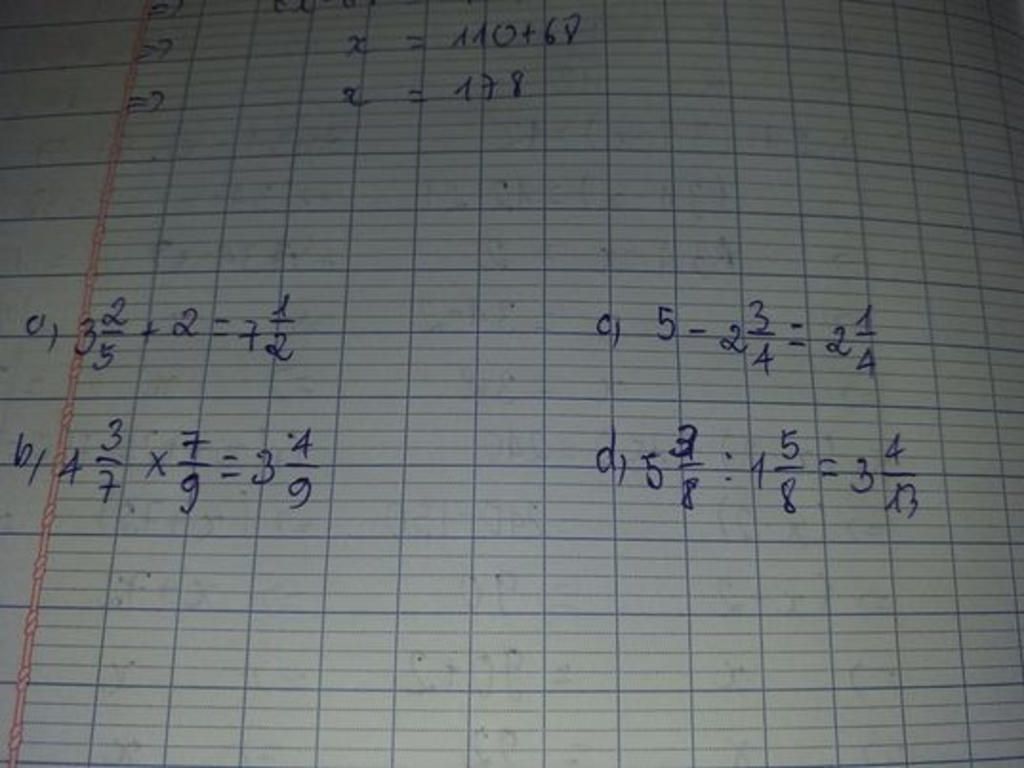 =>
=> x = 110+68
=> x = 178
a, 3 2/5 + 2 = 7 1/2
c, 5 - 2 3/4 = 2 1/4
b, 4 3/7 x 7/9 = 3 4/9
d, 5 3/8 : 1 5/8 = 3 4/13